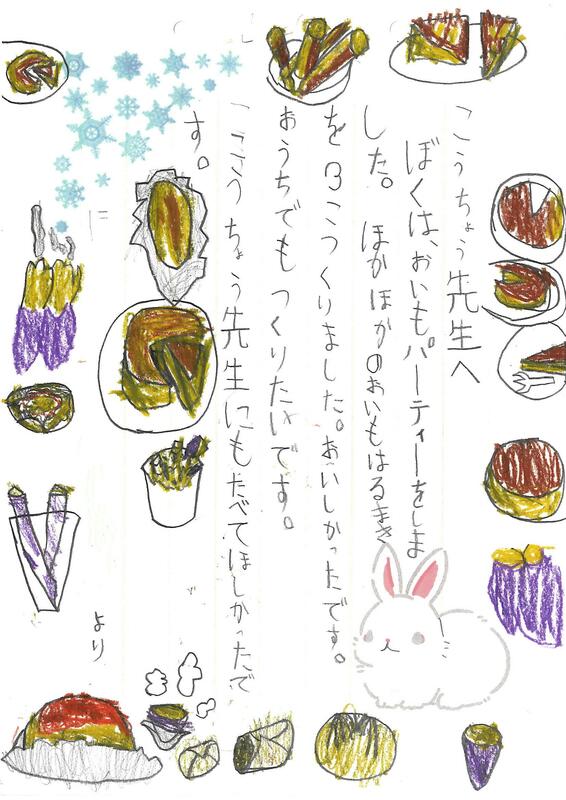 こうちょう先生へ
ぼくは、おいもパーティーをしま
した。ほかほかのおいもはるまき
を3こつくりました。おいしかったです。
おうちでもつくりたいです。
こうちょう先生にもたべてほしかったで
す。
より